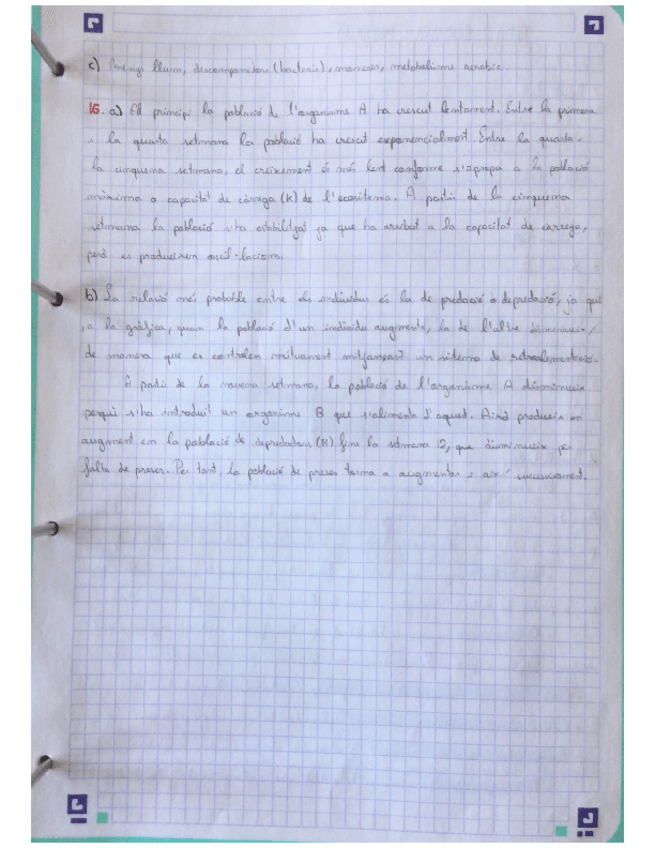 c) menys llum, descomponedors (bacteris), moneres, metabolisme aerobic.
16. a) Al principi la població de l'organisme A ha crescut lentament. Entre la primera
i la quarta setmana la població ha crescut exponencialment. Entre la quarta i
la cinquena setmana, el creixement és més lent conforme s'apropa a la població
màxima o capacitat de càrrega (K) de l'ecosistema. A partir de la cinquena
setmana la població s'ha estabilitzat ja que ha arribat a la capacitat de càrrega,
però es produeixen oscil·lacions.
b) La relació més probable entre els individus és la de predació o depredació, ja que
a la gràfica, quan la població d'un individu augmenta, la de l'altre disminueix,
de manera que es controlen mútuament mitjançant un sistema de retroalimentació.
A partir de la novena setmana, la població de l'organisme A disminueix
perquè s'ha introduit un organisme B que s'alimenta d'aquest. Això produeix un
augment en la població de depredadors (B) fins la setmana, que disminueix per
falta de preses. Per tant, la població de preses torna a augmentar i així successivament.